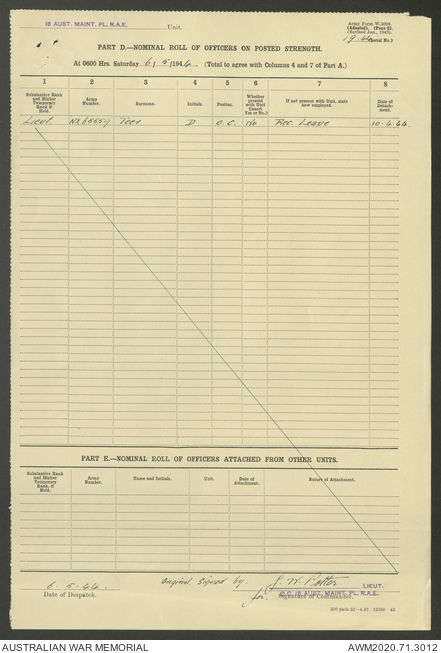 18 AUST. MAINT. PL. R.A.E. Unit.
Army Form W.3008.
(Adapted). (Page 2).
(Revised Jan., 1943).
(Serial No.)
PART D.—NOMINAL ROLL OF OFFICERS ON POSTED STRENGTH.
At 0600 Hrs. Saturday 6/5/1944. (Total to agree with Columns 4 and 7 of Part A.)
1 2 3 4 5 6 7 8
Substantive Rank and Higher Temporary Rank if Held.
Army Number.
Surname.
Initials.
Posting.
Whether present with Unit (insert Yes or No.)
If not present with Unit, state how employed.
Date of Detachment.
Lieut. NX65559 Tees D O.C. No Rec Leave 10-4-44.
PART E.—NOMINAL ROLL OF OFFICERS ATTACHED FROM OTHER UNITS.
Substantive Rank and Higher Temporary Rank, if Held.
Army Number.
Name and Initials.
Unit.
Date of Attachment.
Nature of Attachment.
6-5-44.
Date of Despatch.
Original Signed by J. W. Potter LIEUT.
for O.C. 18 AUST. MAINT. PL. R.A.E.
Signature of Commander.
AUSTRALIAN WAR MEMORIAL
AWM2020.71.3012